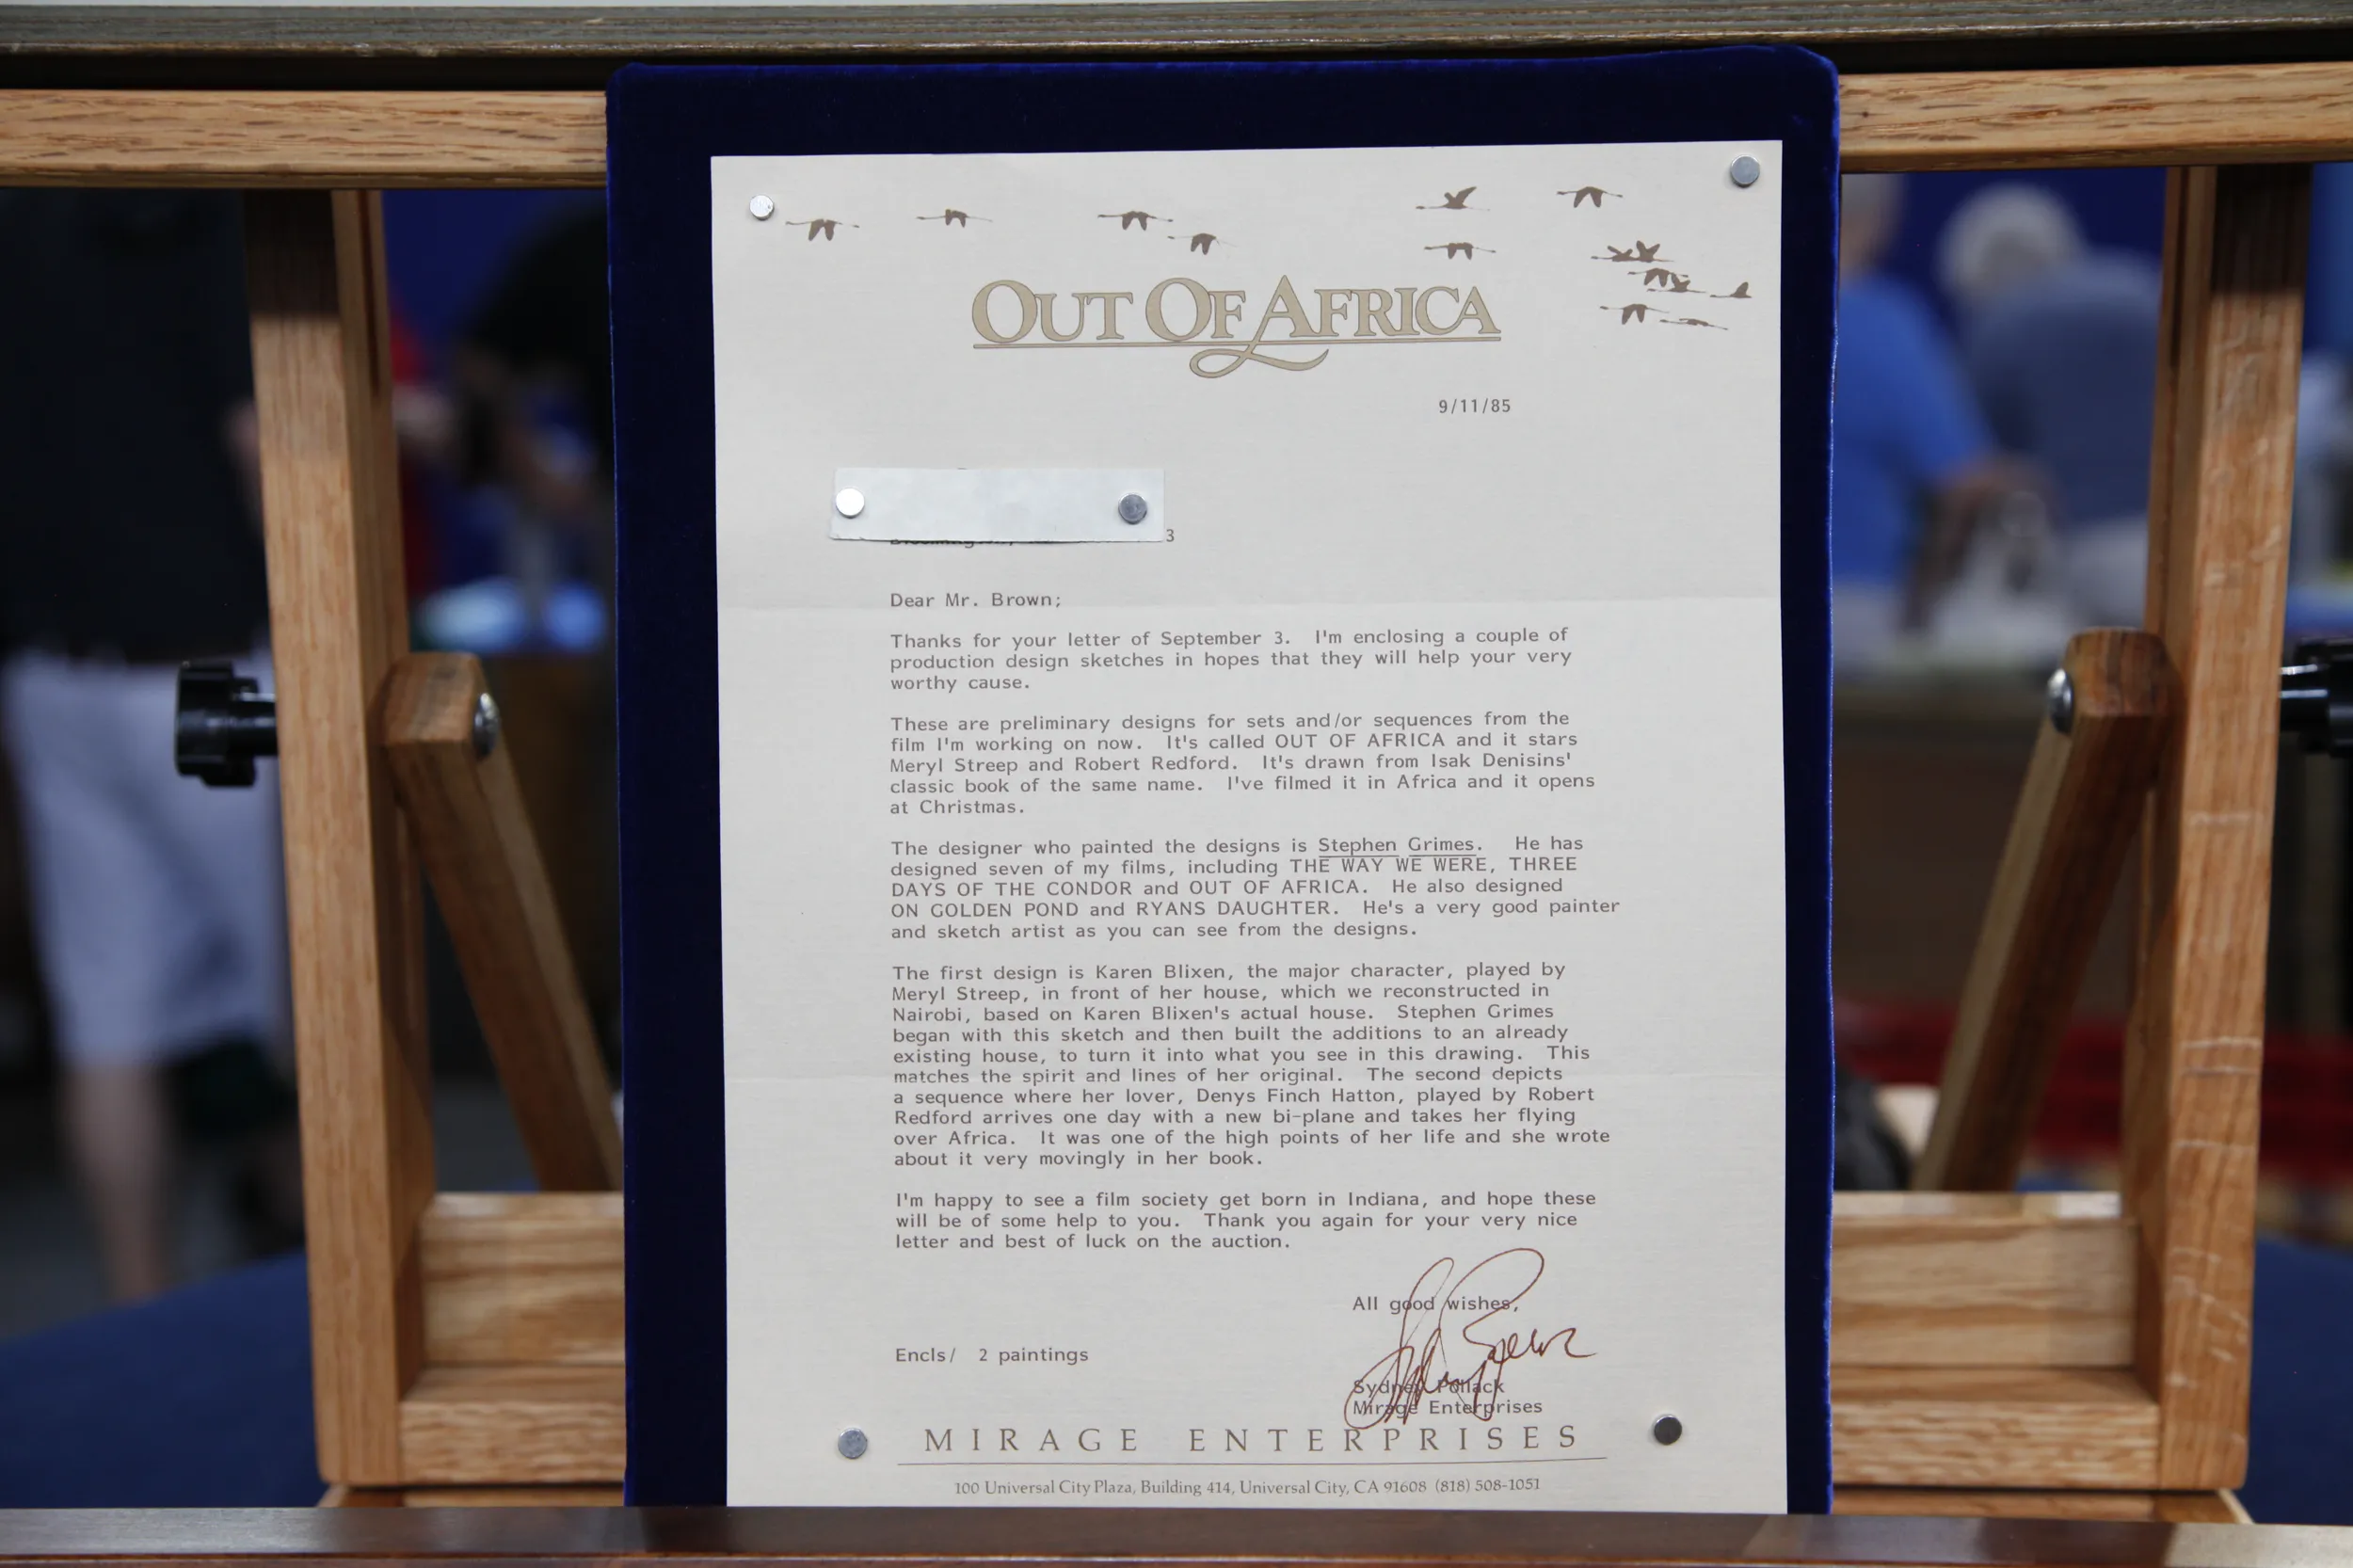 OUT OF AFRICA
9/11/85
3
Dear Mr. Brown;
Thanks for your letter of September 3. I'm enclosing a couple of
production design sketches in hopes that they will help your very
worthy cause.
These are preliminary designs for sets and/or sequences from the
film I'm working on now. It's called OUT OF AFRICA and it stars
Meryl Streep and Robert Redford. It's drawn from Isak Denisins'
classic book of the same name. I've filmed it in Africa and it opens
at Christmas.
The designer who painted the designs is Stephen Grimes. He has
designed seven of my films, including THE WAY WE WERE, THREE
DAYS OF THE CONDOR and OUT OF AFRICA. He also designed
ON GOLDEN POND and RYANS DAUGHTER. He's a very good painter
and sketch artist as you can see from the designs.
The first design is Karen Blixen, the major character, played by
Meryl Streep, in front of her house, which we reconstructed in
Nairobi, based on Karen Blixen's actual house. Stephen Grimes
began with this sketch and then built the additions to an already
existing house, to turn it into what you see in this drawing. This
matches the spirit and lines of her original. The second depicts
a sequence where her lover, Denys Finch Hatton, played by Robert
Redford arrives one day with a new bi-plane and takes her flying
over Africa. It was one of the high points of her life and she wrote
about it very movingly in her book.
I'm happy to see a film society get born in Indiana, and hope these
will be of some help to you. Thank you again for your very nice
letter and best of luck on the auction.
All good wishes,
Encls/ 2 paintings
Sydney Pollack
Mirage Enterprises
MIRAGE ENTERPRISES
100 Universal City Plaza, Building 414, Universal City, CA 91608 (818) 508-1051